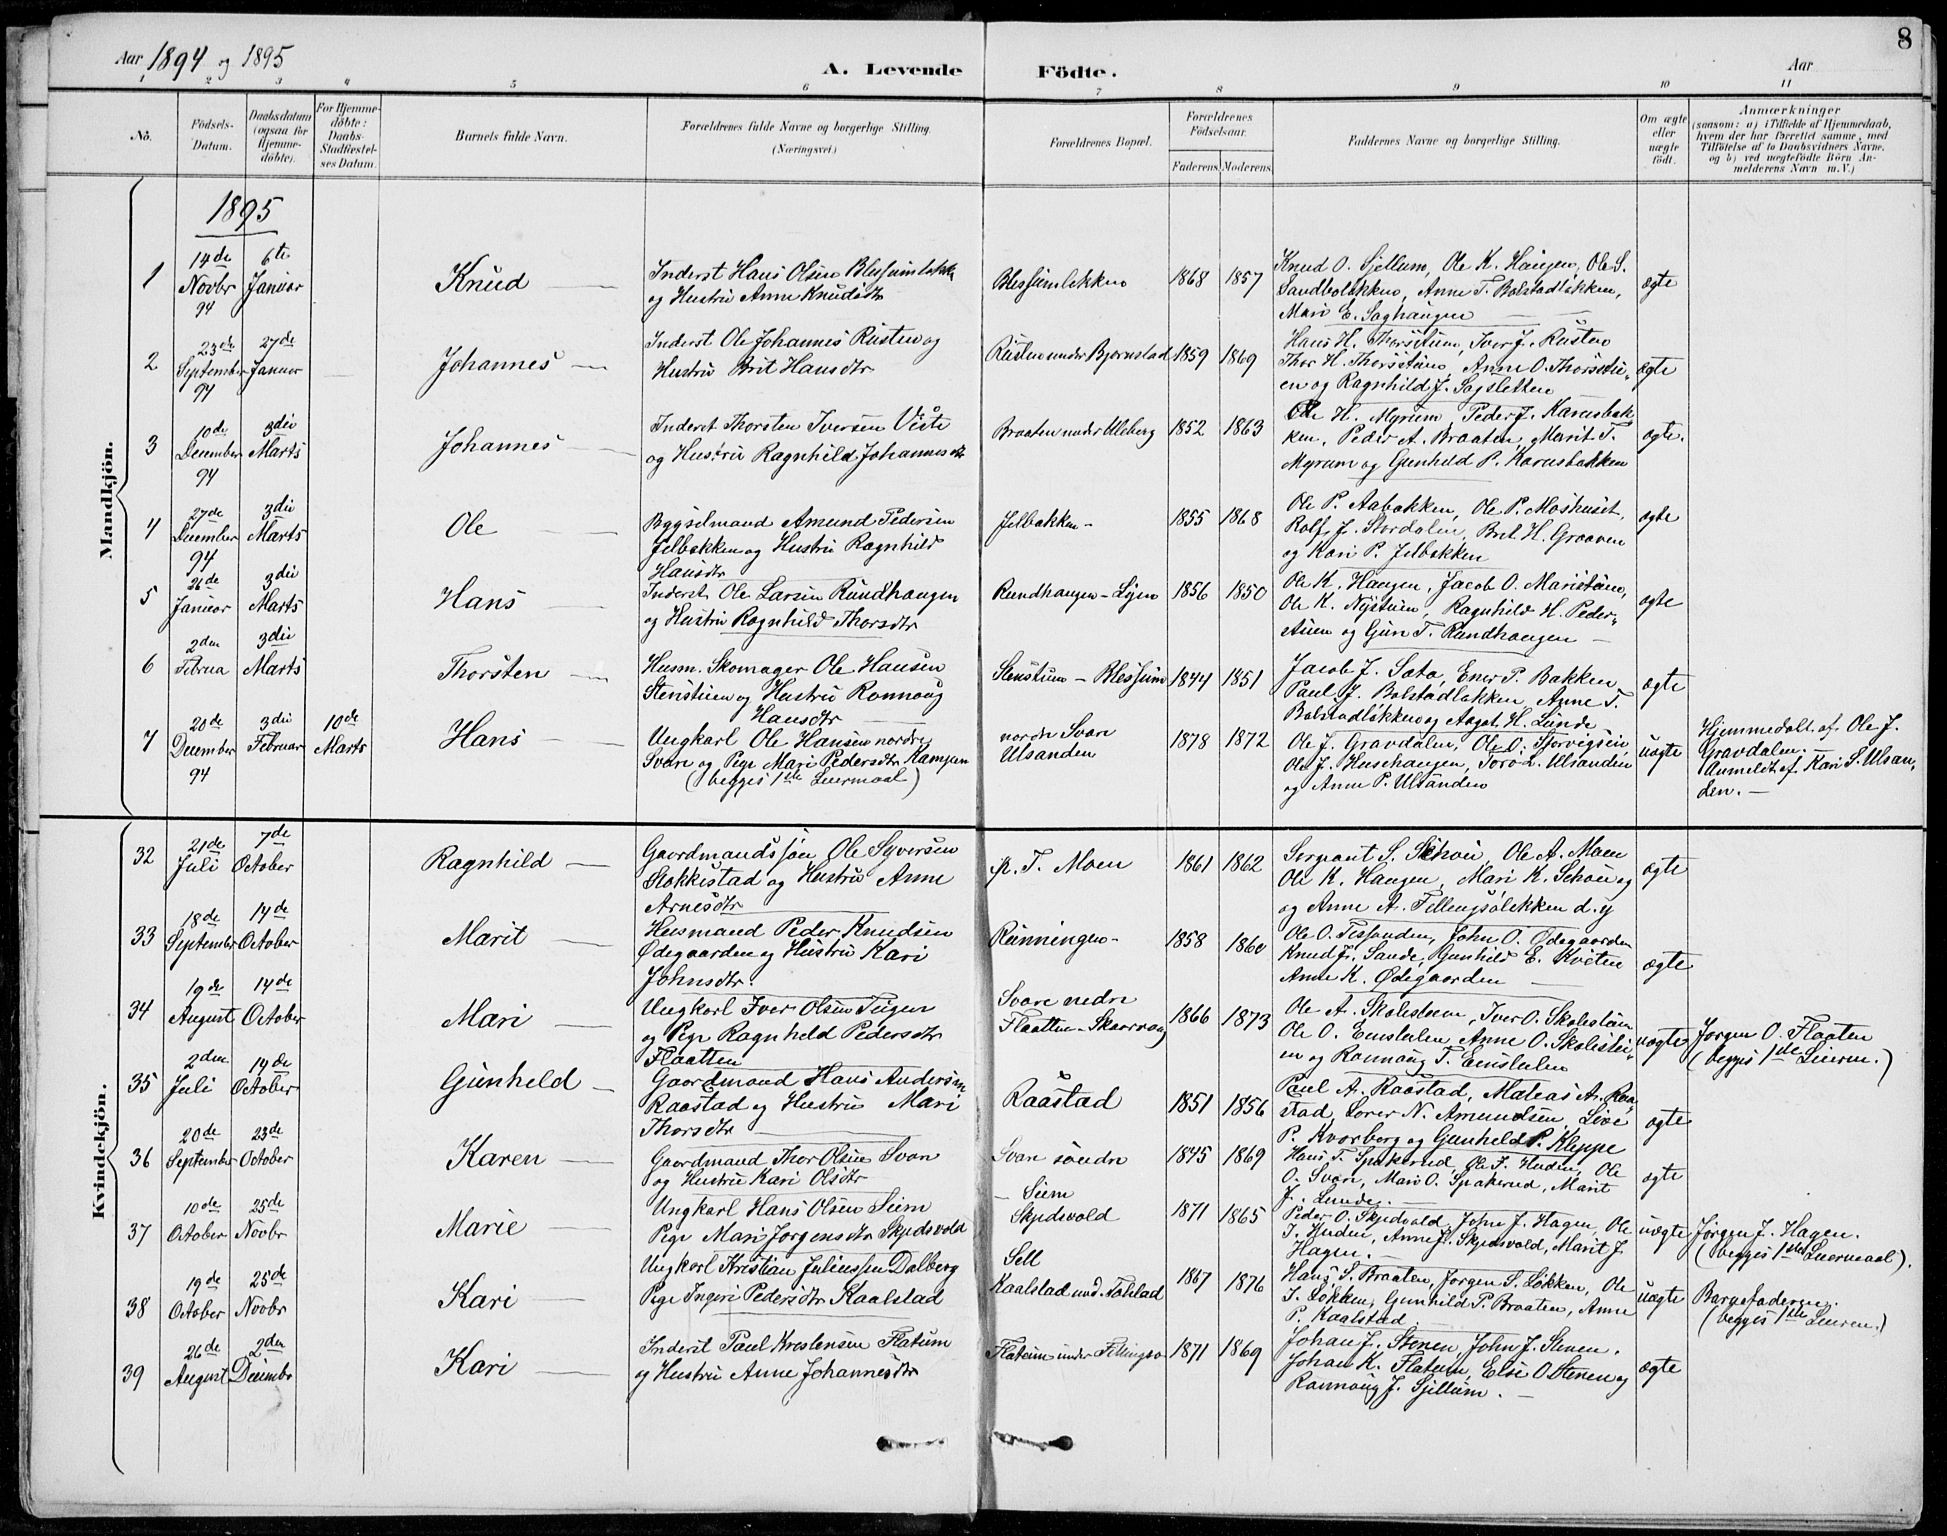 Aar 1894 og 1895
A. Levende Födte.
Aar
8
1 2 3 4 5 6 7 8 9 10 11
No.
Födsels-Datum.
Daabsdatum (ogsaa för Hjemmedöbte).
For Hjemmedöbte: Daabs-Stadfestelses Datum.
Barnets fulde Navn.
Forældrenes fulde Navne og borgerlige Stilling (Næringsvei.)
Forældrenes Bopæl.
Forældrenes Födselsaar.
Faderens Moderens
Faddernes Navne og borgerlige Stilling.
Om ægte eller uægte födt.
Anmærkninger
(saasom: a) i Tilfælde af Hjemmedaab, hvem der har forrettet samme, med Tilföielse af to Daabsvidners Navne, og b) ved uægtefödte Börn Anmelderens Navn m.V.)
Mandkjön.
1895
1
14de Novbr 94
6te Januar
Knud
Inderst Hans Olsen Blessumløkken
og Hustru Anne Knudsdtr
Blessumløkken
1868 1857
Knud O. Sjellum, Ole K. Haugen, Ole S.
Sandboløkken, Anne T. Bolstadløkken,
Mari E. Saghaugen
ægte
2
23de September 94
27de Januar
Johannes
Inderst Ole Johannes Rusten og
Hustru Brit Hansdtr
Rusten under Bjørnstad
1859 1869
Hans H. Thorsstuen, Iver J. Rusten
Thor H. Thorsstuen, Anne O. Thorsstu-
en og Ragnhild J. Sagsletten
ægte
3
10de December 94
3die Marts
Johannes
Inderst Thorsten Iversen Viste
og Hustru Ragnhild Johannesdtr
Braaten under Uleberg
1852 1863
Ole H. Myrum, Peder J. Karusbak
ken, Peder A. Braaten, Marit T.
Myrum og Gunhild P. Karusbakken
ægte.
4
27de December 94
3die Marts
Ole
Bygselmand Amund Pedersen
Jelbakken og Hustru Ragnhild
Hansdtr
Jelbakken
1855 1868
Ole P. Aabakken, Ole P. Moshuset,
Rolf J. Stordalen, Brit H. Graaven
og Kari P. Jelbakken
ægte
5
26de Januar
3die Marts
Hans
Inderst Ole Larsen Rundhaugen
og Hustru Ragnhild Thorsdtr
Rundhaugen
1856 1850
Ole K. Haugen, Jacob O. Maristuen,
Ole K. Nystuen, Ragnhild H. Peder-
stuen og Guri T. Rundhaugen
ægte
6
2den Februa
3die Marts
Thorsten
Husm. Skomager Ole Hansen
Stenstuen og Hustru Rønnaug
Hansdtr
Stenstuen - Blessum
1844 1851
Jacob J. Sata, Ener P. Bakken
Paul J. Bolstadløkken, Anne T.
Bolstadløkken og Aagot H. Lunde
ægte
7
20de December 94
3die Februar
10de Marts
Hans
Ungkarl Ole Hansen nordre
Svare og Pige Mari Pedersdtr Kampen
(begges 1ste Leiermaal)
nordre Svare
Ulsanden
1878 1872
Ole J. Gravdalen, Ole O. Storvigsein,
Ole J. Huschaugen, Toro L. Ulsanden
og Anne P. Ulsanden
uægte
Hjemmedøbt af Ole J.
Gravdalen.
Anmeldt af Kari S. Ulsan-
den.
Kvindekjön.
32
21de Juli
7de October
Ragnhild
Gaardmandssøn Ole Syversen
Stokkestad og Hustru Anne
Arnesdtr
p. T. Moen
1861 1862
Sergeant S. Schou, Ole A. Moen
Ole K. Haugen, Mari K. Schou og
og Anne A. Fillingsøløkken d. y
ægte
33
18de September
14de October
Marit
Husmand Peder Knudsen
Ødegaarden og Hustru Kari
Johnsdtr.
Runningen
1858 1860
Ole O. Tessanden, John O. Ødegaarden
Knud Js. Sande, Gunhild E. Kviten
Anne K. Ødegaarden
ægte
34
19de August
14de October
Mari
Ungkarl Iver Olsen Teigen
og Pige Ragnheld Pedersdtr
Flaatten
Svare nedre
Flaatten - Skaarvang
1866 1873
Ole A. Skolestuen, Iver O. Skolestuen
Ole O. Emstulen, Anne O. Skolestu-
en og Rannaug T. Emstulen
uægte
Jørgen O. Flaaten
(begges 1ste Leierm.)
35
2den Juli
14de October
Gunheld
Gaardmand Hans Andersen
Raastad og Hustru Mari
Thorsdtr
Raastad
1851 1856
Paul A. Raastad, Mateas A. Raa-
stad, Lover N. Amundsen, Live
P. Kvarberg og Gunheld P. Kleppe
ægte
36
20de September
23de October
Karen
Gaardmand Thor Olsen Svare
og Hustru Kari Olsdtr
Svare søndre
1845 1869
Hans T. Spakerud, Ole J. Huden, Ole
O. Svare, Mari O. Spakerud, Marit
J. Lunde.
ægte
37
10de October
25de Novbr
Marie
Ungkarl Hans Olsen Seim
Pige Mari Jørgensdtr Skjedsvold
Seim
Skjedsvold
1871 1865
Peder O. Skjedsvold, John J. Hagen, Ole
J. Huden, Anne J. Skjedsvold, Marit J.
Hagen.
uægte
Jørgen J. Hagen.
(begges 1ste Leiermaal).
38
19de October
25de Novbr
Kari
Ungkarl Kristian Juliussen Dalberg
Pige Ingeri Pedersdtr Kaalstad
Sell
Kaalstad
1867 1876
Hans S. Braaten, Jørgen S. Løkken, Ole
J. Løkken, Gunhild P. Braaten, Anne
P. Kaalstad
uægte
Barnefaderen.
(begges 1ste Leierm.)
39
26de August
2den Decimbr
Kari
Inderst Paul Krestensen Flatum
og Hustru Anne Johannesdtr
Flatum under Fillingso
1871 1869
Johan J. Stenen, John J. Stenen.
Johan K. Flatum, Else O Stenen og
Rannaug J. Sjellum.
ægte